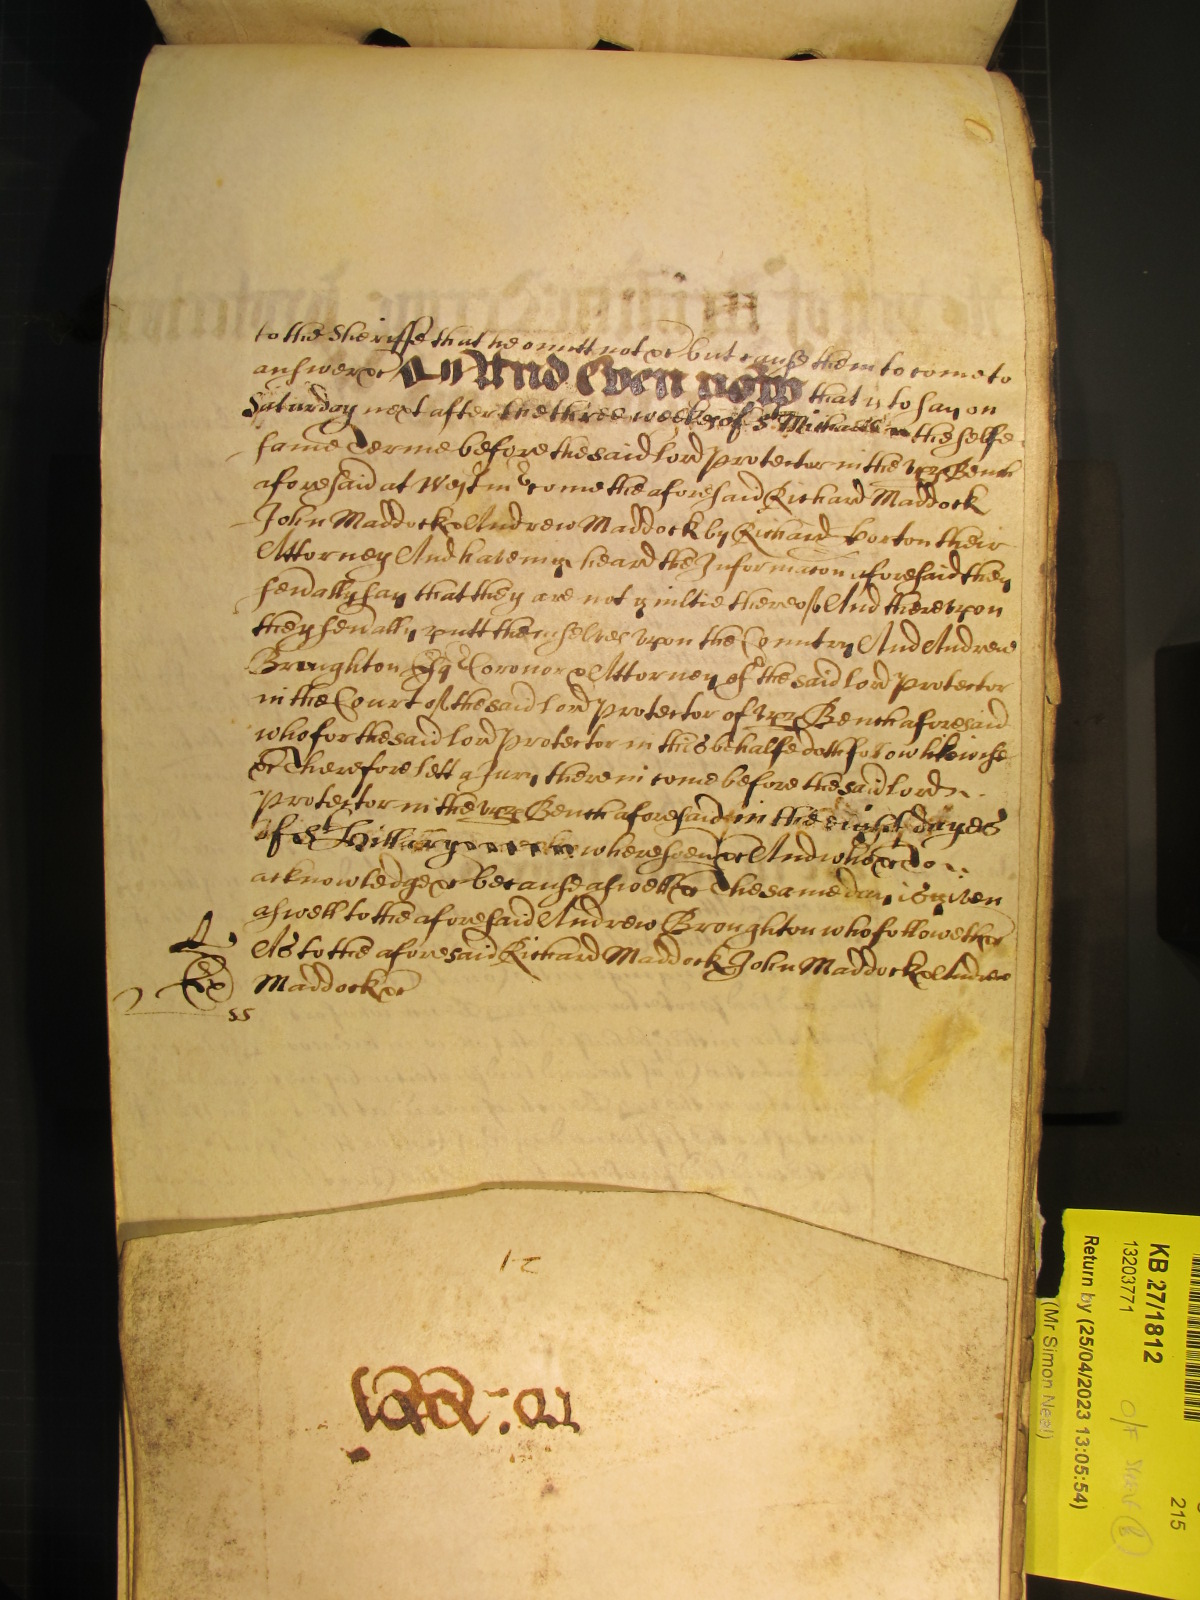 to the Sheriffe that he omitt not &c but cause them to come to
answere &c And Even now that is to say on
Saturday next after the three weekes of St Michael in the selfe
same Terme before the said lord protector in the vpp Bench
aforesaid at Westmr come the aforesaid Richard Maddock
John Maddock & Andrew Maddock by Richard Horton their
Attorney And haveing heard the Informacon aforesaid they
sevally say that they are not guiltie thereof And therevpon
they sevally putt themselves vpon the Countrey And Andrew
Broughton Esqr Coronor & Attorney of the said lord protector
in the Court of the said lord protector of vpp Bench aforesaid
who for the said lord protector in this behalfe doth follow likewise
&c Therefore lett a Jury therein come before the said lord
Protector in the vpp Bench aforesaid in the eight dayes
of St Hillary wheresoevr &c And who &c To
acknowledge &c because aswell &c The same day is given
aswell to the aforesaid Andrew Broughton who followeth &c
As to the aforesaid Richard Maddock John Maddock & Andrew
Maddock &c
ss
12
KB 27/1812
13203771
Return by (25/04/2023 13:05:54)
(Mr Simon Neal)
215